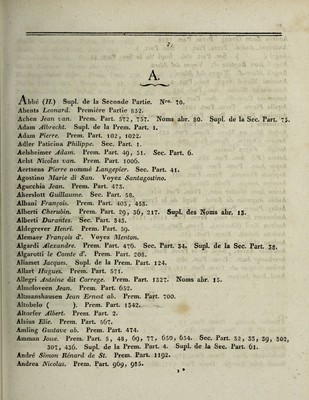 A.
Abbé (H.) Supl. de la Seconde Partie. Nro. 70.
Abents Leonard. Première Partie 832.
Achen Jean van. Prem. Part. 572, 757. Noms abr. 80. Supl. de la Sec. Part. 75.
Adam Albrecht. Supl. de la Prem. Part. 1.
Adam Pierre. Prem. Part. 102, 1022.
Adler Paticina Philippe. Sec. Part. 1.
Aelsheimer Adam. Prem. Part. 49, 51. Sec. Part. 6.
Aelst Nicolas van. Prem. Part. 1006.
Aertsens Pierre nommé Langepier. Sec. Part. 41.
Agostino Marie di San. Voyez Santagostino.
Agucchia Jean. Prem. Part. 473.
Akersloot Guillaume. Sec. Part. 58.
Albani François. Prem. Part. 403, 458.
Alberti Cherubin. Prem. Part. 29, 36, 217. Supl. des Noms abr. 13.
Alberti Durantes. Sec. Part. 345.
Aldegrever Henri. Prem. Part. 59.
Alemaer François d'. Voyez Menton.
Algardi Alexandre. Prem. Part. 476. Sec. Part. 34. Supl. de la Sec. Part. 38.
Algarotti le Comte d'. Prem. Part. 208.
Aliamet Jacques. Supl. de la Prem. Part. 124.
Allart Hugues. Prem. Part. 571.
Allegri Antoine dit Correge. Prem. Part. 1327. Noms abr. 15.
Almeloveen Jean. Prem. Part. 652.
Altzmanshausen Jean Ernest ab. Prem. Part. 700.
Altobelo ( ). Prem. Part. 1342.
Altorfer Albert. Prem. Part. 2.
Alvius Elie. Prem. Part. 567.
Amling Gustave ab. Prem. Part. 474.
Amman Josse. Prem. Part. 5, 48, 69, 77, 650, 654. Sec. Part. 32, 33, 39, 302,
307, 436. Supl. de la Prem. Part. 4. Supl. de la Sec. Part. 61.
André Simon Rénard de St. Prem. Part. 1192.
Andrea Nicolas. Prem. Part. 969, 985.